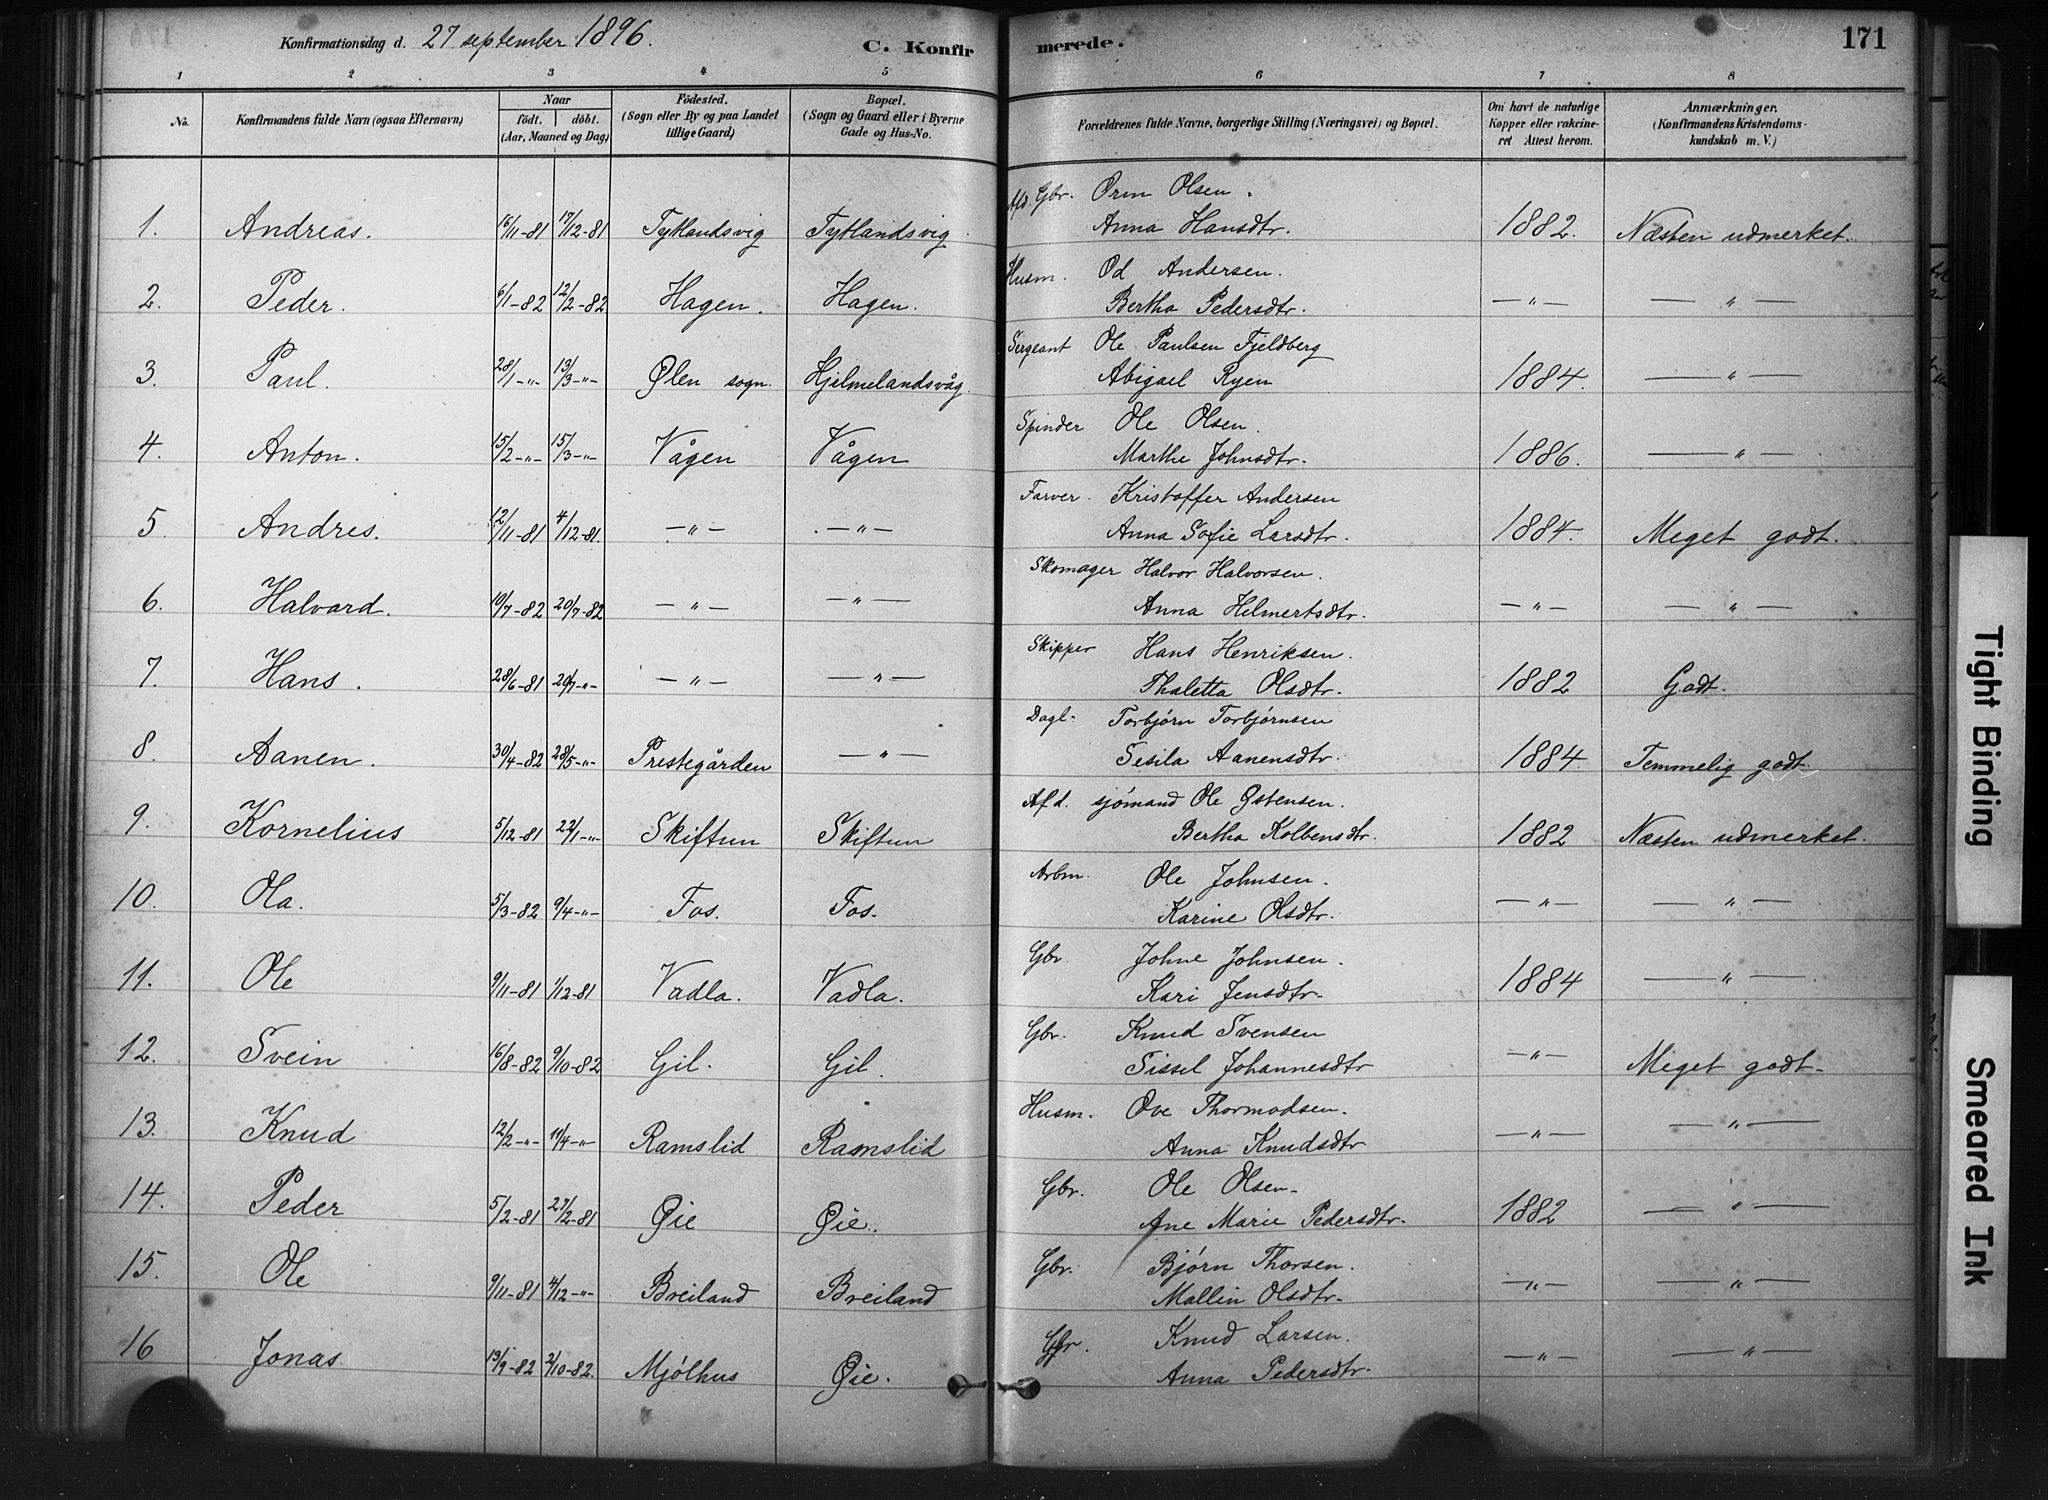 Konfirmationsdag d. 27 september 1896.
C. Konfirmerede.
171
1 2 3 4 5 6 7 8
No.
Konfirmandens fulde Navn (ogsaa Efternavn)
Naar
født. døbt.
(Aar, Maaned og Dag)
Fødested.
(Sogn eller By og paa Landet
tillige Gaard)
Bopæl.
(Sogn og Gaard eller i Byerne
Gade og Hus-No.
Forældrenes fulde Navne, borgerlige Stilling (Næringsvei) og Bopæl.
Om havt de naturlige
Kopper eller vakcine-
ret Attest herom.
Anmærkninger.
(Konfirmandens Kristendoms-
kundskab m. V.)
Afd. Gbr. Orm Olsen.
1. Andreas. 16/11-81 17/12-81 Tytlandsvig Tytlandsvig Anna Hansdtr. 1882. Næsten udmerket.
Husm. Od Andersen.
2. Peder. 6/1-82 12/2-82 Hagen. Hagen. Bertha Pedersdtr. —"— —"—
Sergeant Ole Paulsen Fjeldberg
3. Paul. 28/1-"- 13/3-"- Ølen sogn. Hjelmelandsvåg. Abigael Ryen 1884. —"—
Spinder Ole Olsen.
4. Anton. 15/2-"- 15/3-"- Vågen Vågen Marthe Johnsdtr. 1886. —"—
Farver. Kristoffer Andersen
5. Andres. 12/11-81 4/12-81 —"— —"— Anna Sofie Larsdtr. 1884. Meget godt.
Skomager Halvor Halvorsen.
6. Halvard. 10/7-82 20/7-82 —"— —"— Anna Helmertsdtr. —"— —"—
Skipper Hans Henriksen.
7. Hans. 28/6-81 20/7-"- —"— —"— Thaletta Olsdtr. 1882 Godt.
Dagl. Torbjørn Torbjørnsen
8. Aanen. 30/4-82 28/5-"- Prestegården —"— Sesila Aanensdtr. 1884. Temmelig godt.
Afd. sjømand Ole Østensen.
9. Kornelius 5/12-81 22/1-"- Skiftun Skiftun Bertha Kolbensdtr. 1882 Næsten udmerket.
Arbm. Ole Johnsen.
10. Ola. 5/3-82 9/4-"- Fos. Fos. Karine Olsdtr. —"— —"—
Gbr. Johne Johnsen.
11. Ole 9/11-81 1/12-81 Vadla. Vadla. Kari Jensdtr. 1884 —"—
Gbr. Knud Svensen
12. Svein 16/8-82 9/10-82 Gil. Gil. Sissel Johannesdtr —"— Meget godt.
Husm. Ove Thormodsen.
13. Knud 12/2-"- 11/4-"- Ramslid Ramslid Anna Knudsdtr —"— —"—
Gbr. Ole Olsen.
14. Peder 5/2-81 27/2-81 Øie Øie. Ane Marie Pedersdtr. 1882 —"—
Gbr. Bjørn Thorsen.
15. Ole 9/11-81 4/12-"- Breiland Breiland Mallin Olsdtr. —"— —"—
Gbr. Knud Larsen.
16 Jonas 13/9-82 2/10-82. Mjølhus Øie. Anna Pedersdtr. —"— —"—
Tight Binding
Smeared Ink